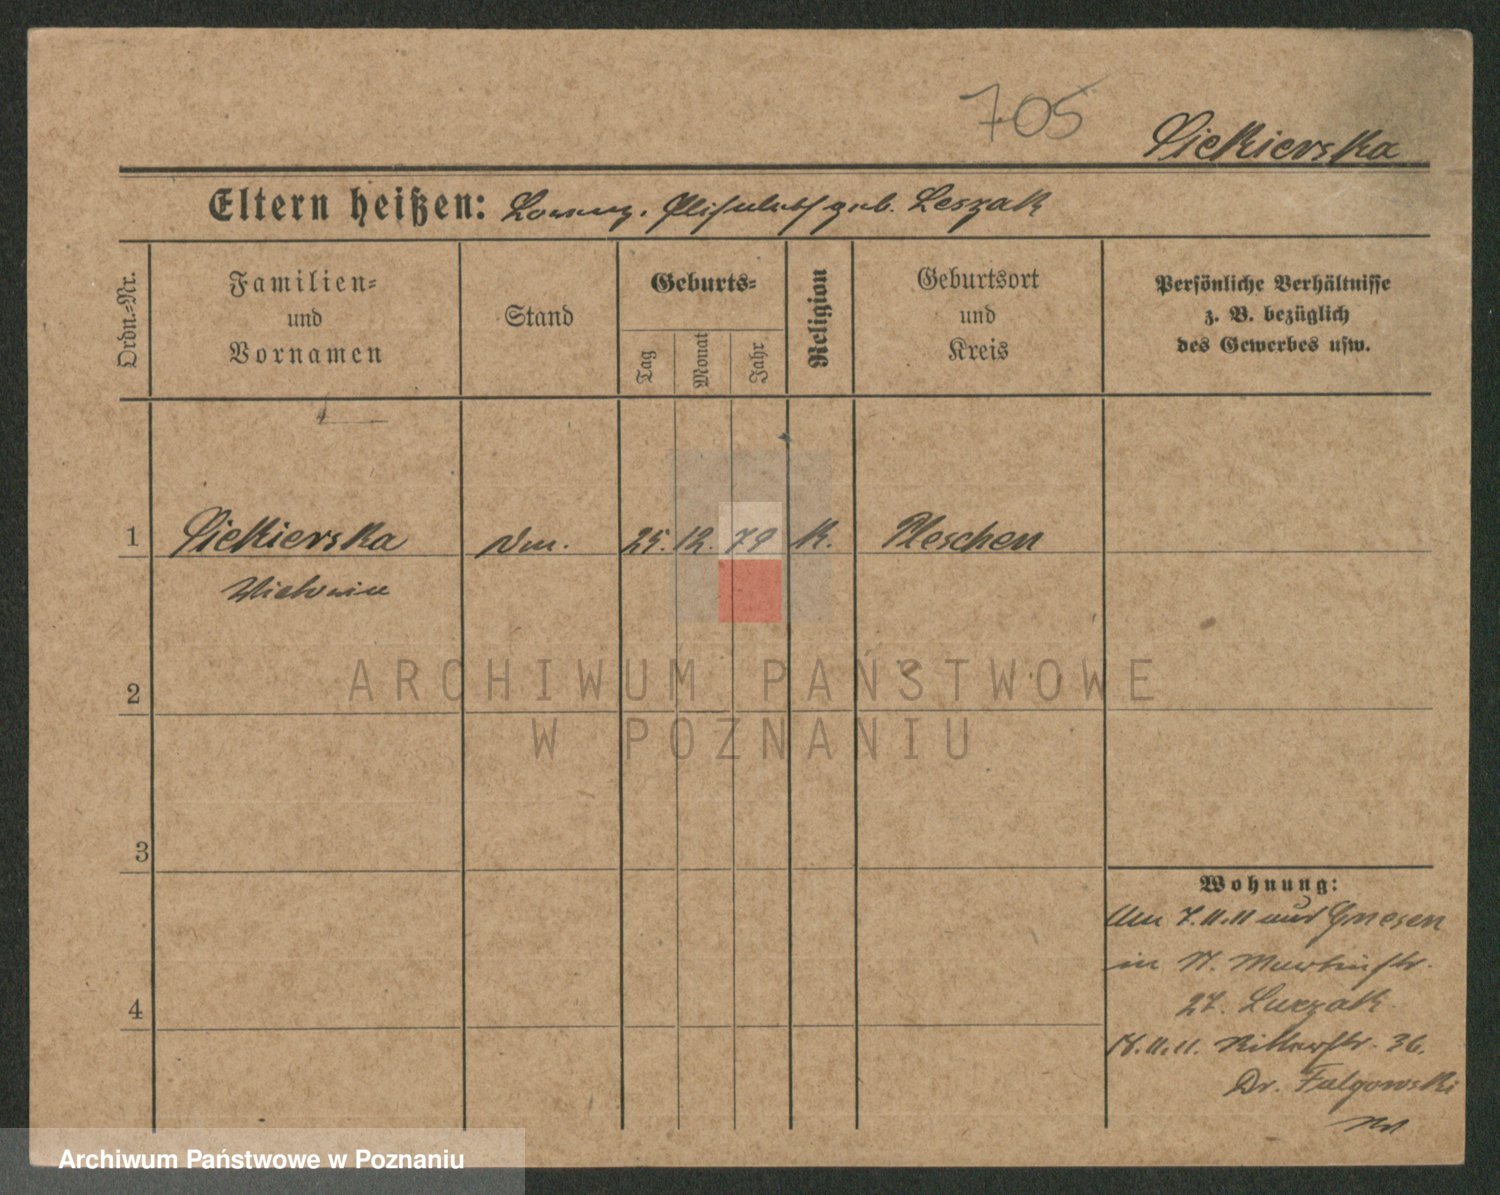 705
Siekierska
Eltern heißen: Lorenz, Elisabeth geb. Leszak
Ordn.-Nr.
Familien-
und
Vornamen
Stand
Geburts-
Tag
Monat
Jahr
Religion
Geburtsort
und
Kreis
Persönliche Verhältnisse
z. B. bezüglich
des Gewerbes usw.
1 Siekierska 25. 12. 79 K. Pleschen
2
3
4
Wohnung:
Am 7.11.11 aus Gnesen
in St. Martinstr.
27.
18.11.11. Ritterstr. 36.
Dr. Fulgowski
ARCHIWUM PAŃSTWOWE
W POZNANIU
Archiwum Państwowe w Poznaniu